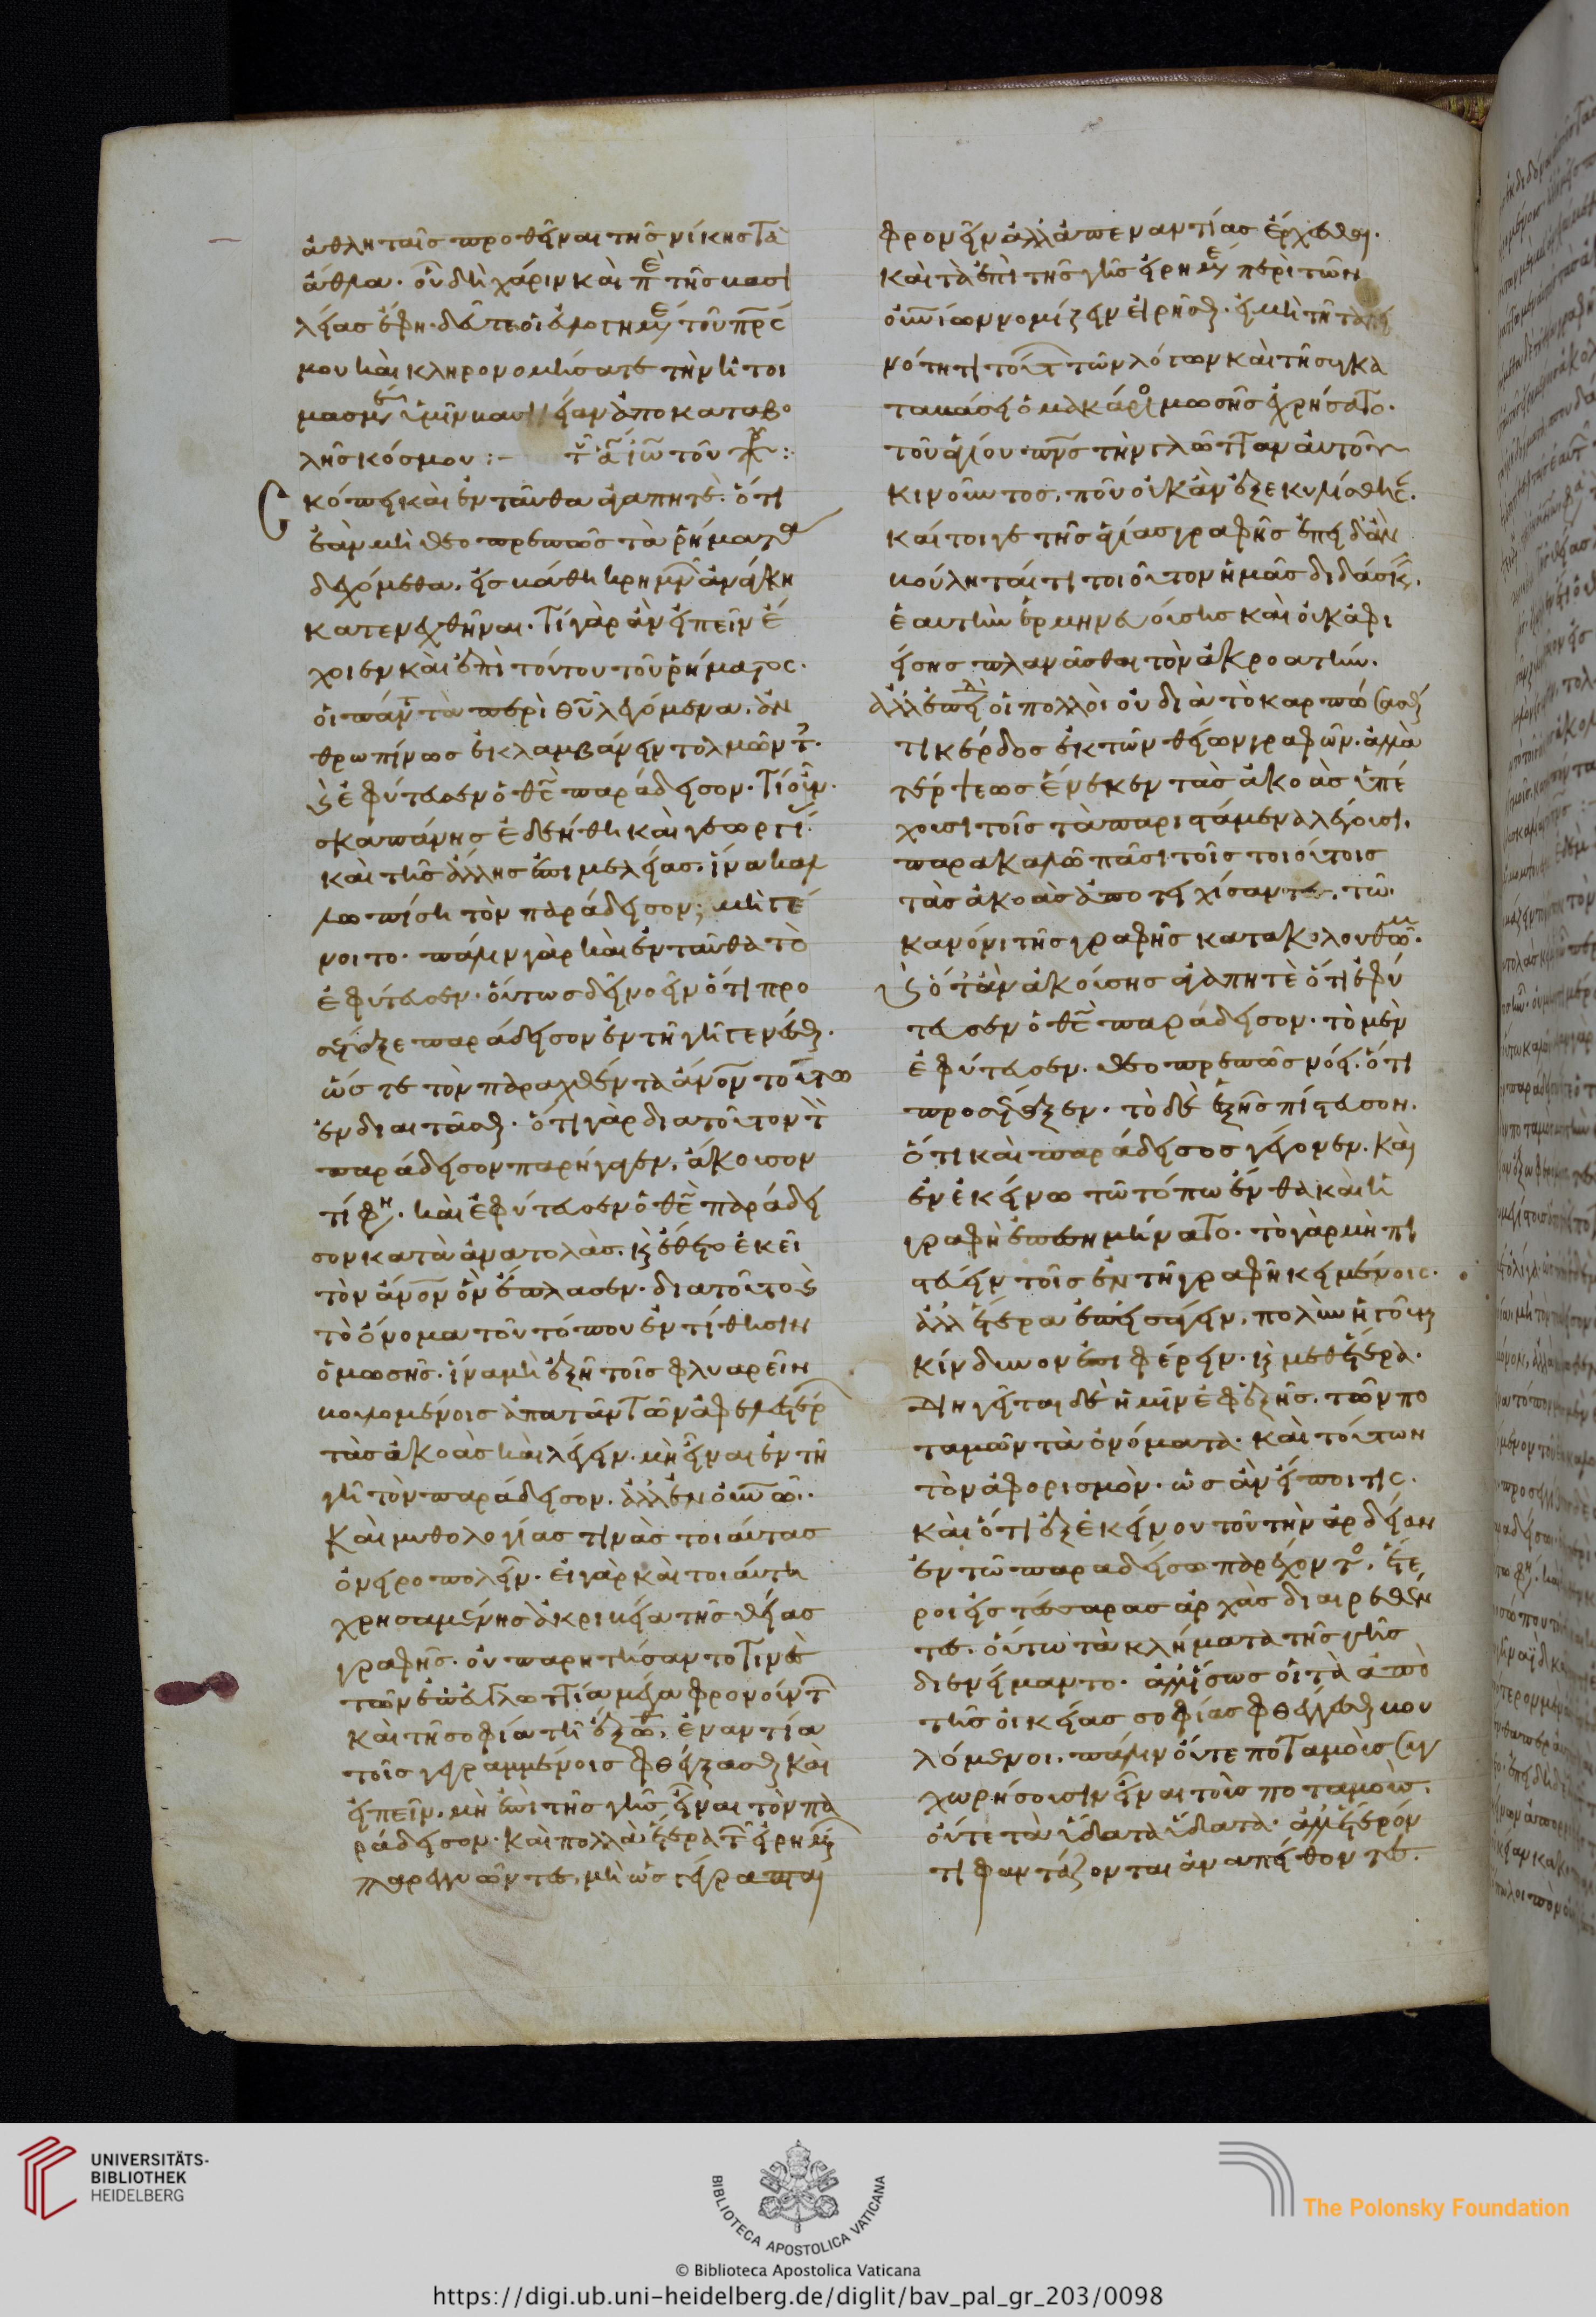 ἀθληταῖς προθεῖναι τῆς νίκης τὰ
ἆθλα. οὗ δὴ χάριν καὶ π(ε) τῆς βασι
λείας ἔφη. δεῦτε οἱ εὐλογημέ(νοι) τοῦ π̅ρ̅ς
μου καὶ κληρονομήσατε τὴν ἡτοι
μασμέν(ην) ὑμῖν βασιλείαν ἀπὸ καταβο
λῆς κόσμου :- τοῦ ἁγίου ἰω τοῦ χρ :
κόπει καὶ ἐνταῦθα ἀγαπητέ. ὅτι
ἐὰν μὴ θεοπρεπῶς τὰ ῥήματα
δεχόμεθα. εἰς βάθη κρημνῶν ἀνάγκη
κατενεχθῆναι. τί γὰρ ἂν εἰπεῖν ἔ
χοιεν καὶ ἐπὶ τούτου τοῦ ῥήματος.
οἱ πάντα τὰ περὶ θ̅υ̅ λεγόμενα. ἀν
θρωπίνως ἐκλαμβάνειν τολμῶντ(ες).
κ(αὶ) ἐφύτευσεν ὁ θ̅ς̅ παράδεισον. τί οὖν.
σκαπάνης ἐδεήθη καὶ γεωργί(ας).
καὶ τῆς ἄλλης ἐπιμελείας. ἵνα καλ
λωπίσῃ τὸν παράδεισον; μὴ γέ
νοιτο. πάλιν γὰρ καὶ ἐνταῦθα τὸ
ἐφύτευσεν. οὕτως δεῖ νοεῖν ὅτι προ
σέταξε παράδεισον ἐν τῇ γῇ γενέσθ(αι).
ὥστε τὸν πλασθέντα ἄν̅ο̅ν̅ τούτω
ἐνδιαιτᾶσθ(αι). ὅτι γὰρ διὰ τοῦτον τ(ὸν)
παράδεισον παρήγαγεν. ἄκουσον
τί φη(σι). καὶ ἐφύτευσεν ὁ θ̅ς̅ παράδει
σον κατὰ ἀνατολάς. κ(αὶ) ἔθετο ἐκεῖ
τὸν ἄν̅ο̅ν̅ ὃν ἔπλασεν. διὰ τοῦτο κ(αὶ)
τὸ ὄνομα τοῦ τόπου ἐντίθησιν
ὁ μωσῆς. ἵνα μὴ ἐξῇ τοῖς φλυαρεῖν
βουλομένοις ἀπατᾶν τῶν ἀφελεστέρ(ων)
τὰς ἀκοὰς καὶ λέγειν. μὴ εἶναι ἐν τῇ
γῇ τὸν παράδεισον. ἀλλ' ἐν οὐ̅ν̅ω̅.
καὶ μυθολογίας τινὰς τοιαύτας
ὀνειροπολεῖν. εἰ γὰρ καὶ τοιαύτη
χρησαμένης ἀκριβεία τῆς θείας
γραφῆς. οὐ παρητήσαντο τινὲς
τῶν ἐπ' εὐγλωττία μέγα φρονούντ(ων)
καὶ τῇ σοφία τῇ ἔξω(θεν), ἐναντία
τοῖς γεγραμμένοις φθέγξασθ(αι) καὶ
εἰπεῖν. μὴ ἐπὶ τῆς γῆς εἶναι τὸν πα
ράδεισον. καὶ πολλὰ ἕτερα τ(ῶν) εἰρημ(ένων)
παρεγγυῶντες, μὴ ὡς γέγραπται
φρονεῖν ἀλλ' ἀπεναντίας ἔρχεσθαι.
καὶ τὰ ἐπὶ τῆς γῆς εἰρημέ(να) περὶ τῶν
οὐ̅ν̅ίων νομίζειν εἰρῆσθ(αι). εἰ μὴ τῇ ταπει
νότητι τούτ(ων) τῶν λόγων καὶ τῇ συγκα
ταβάσει ὁ μακάριο(ς) μωσῆς ἐχρήσατο.
τοῦ ἁγίου π̅ν̅ς̅ τὴν γλῶτταν αὐτοῦ
κινοῦντος. ποῦ οὐκ ἂν ἐξεκυλίσθης.
καίτοιγε τῆς ἁγίας γραφῆς ἐπειδὰν
βούληταί τι τοιοῦτον ἡμᾶς διδάσκ(ειν).
ἑαυτὴν ἑρμηνευούσης καὶ οὐκ ἀφι
είσης πλανᾶσθαι τὸν ἀκροατήν.
ἀλλ' ἐπειδὴ οἱ πολλοὶ οὐ διὰ τὸ καρπώσασθ(αι)
τι κέρδος ἐκ τῶν θείων γραφῶν. ἀλλὰ
τέρψεως ἕνεκεν τὰς ἀκοὰς ὑπέ
χουσι τοῖς τὰ παριστάμενα λέγουσι.
παρακαλῶ πᾶσι τοῖς τοιούτοις
τὰς ἀκοὰς ἀποτειχίσαντες. τῶ
κανόνι τῆς γραφῆς κατακολουθῶμ(εν).
κ(αὶ) ὅταν ἀκούσης ἀγαπητὲ ὅτι ἐφύ
τευσεν ὁ θ̅ς̅ παράδεισον. τὸ μὲν
ἐφύτευσεν. θεοπρεπῶς νόει. ὅτι
προσέταξεν. τὸ δὲ ἑξῆς πίστευσον.
ὅτι καὶ παράδεισος γέγονεν. καὶ
ἐν ἐκείνω τῶ τόπω ἔνθα καὶ ἡ
γραφὴ ἐπεσημήνατο. τὸ γὰρ μὴ πι
στεύειν τοῖς ἐν τῇ γραφῇ κειμένοις.
ἀλλ' ἕτερα ἐπεισάγειν. πολὺν ἡγοῦμ(αι)
κίνδυνον ἐπιφέρειν. κ(αὶ) μεθ' ἕτερα.
διηγεῖται δὲ ἡμῖν ἐφεξῆς. τῶν πο
ταμῶν τὰ ὀνόματα. καὶ τούτων
τὸν ἀφορισμὸν. ὡς ἂν εἴποι τις.
καὶ ὅτι ἐξ ἐκείνου τοῦ τὴν ἀρδείαν
ἐν τῶ παραδείσω παρέχοντο(ς). ἕτε
ροι εἰς τέσσαρας ἀρχὰς διαιρεθέν
τες. οὕτω τὰ κλήματα τῆς γῆς
διενείμαντο. ἀλλ' ἴσως οἱ τὰ ἀπὸ
τῆς οἰκείας σοφίας φθέγγεσθ(αι) βου
λόμενοι. πάλιν οὔτε ποταμοὺς συγ
χωρήσουσιν εἶναι τοὺς ποταμούς.
οὔτε τὰ ὕδατα ὕδατα. ἀλλ' ἕτερόν
τι φαντάζονται ἀναπείθοντες.
UNIVERSITÄTS-
BIBLIOTHEK
HEIDELBERG
BIBLIOTECA APOSTOLICA VATICANA
The Polonsky Foundation
© Biblioteca Apostolica Vaticana
https://digi.ub.uni-heidelberg.de/diglit/bav_pal_gr_203/0098